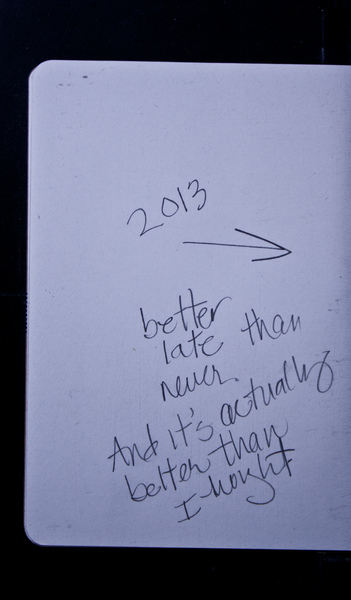 2013
better
late than
never.
And it's actually
better than
I thought